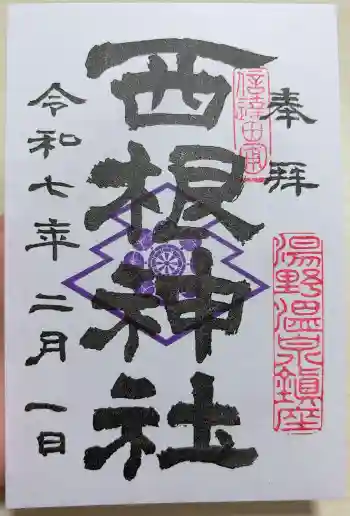 奉拝
西根神社
令和七年 二月一日
湯野温泉鎮座